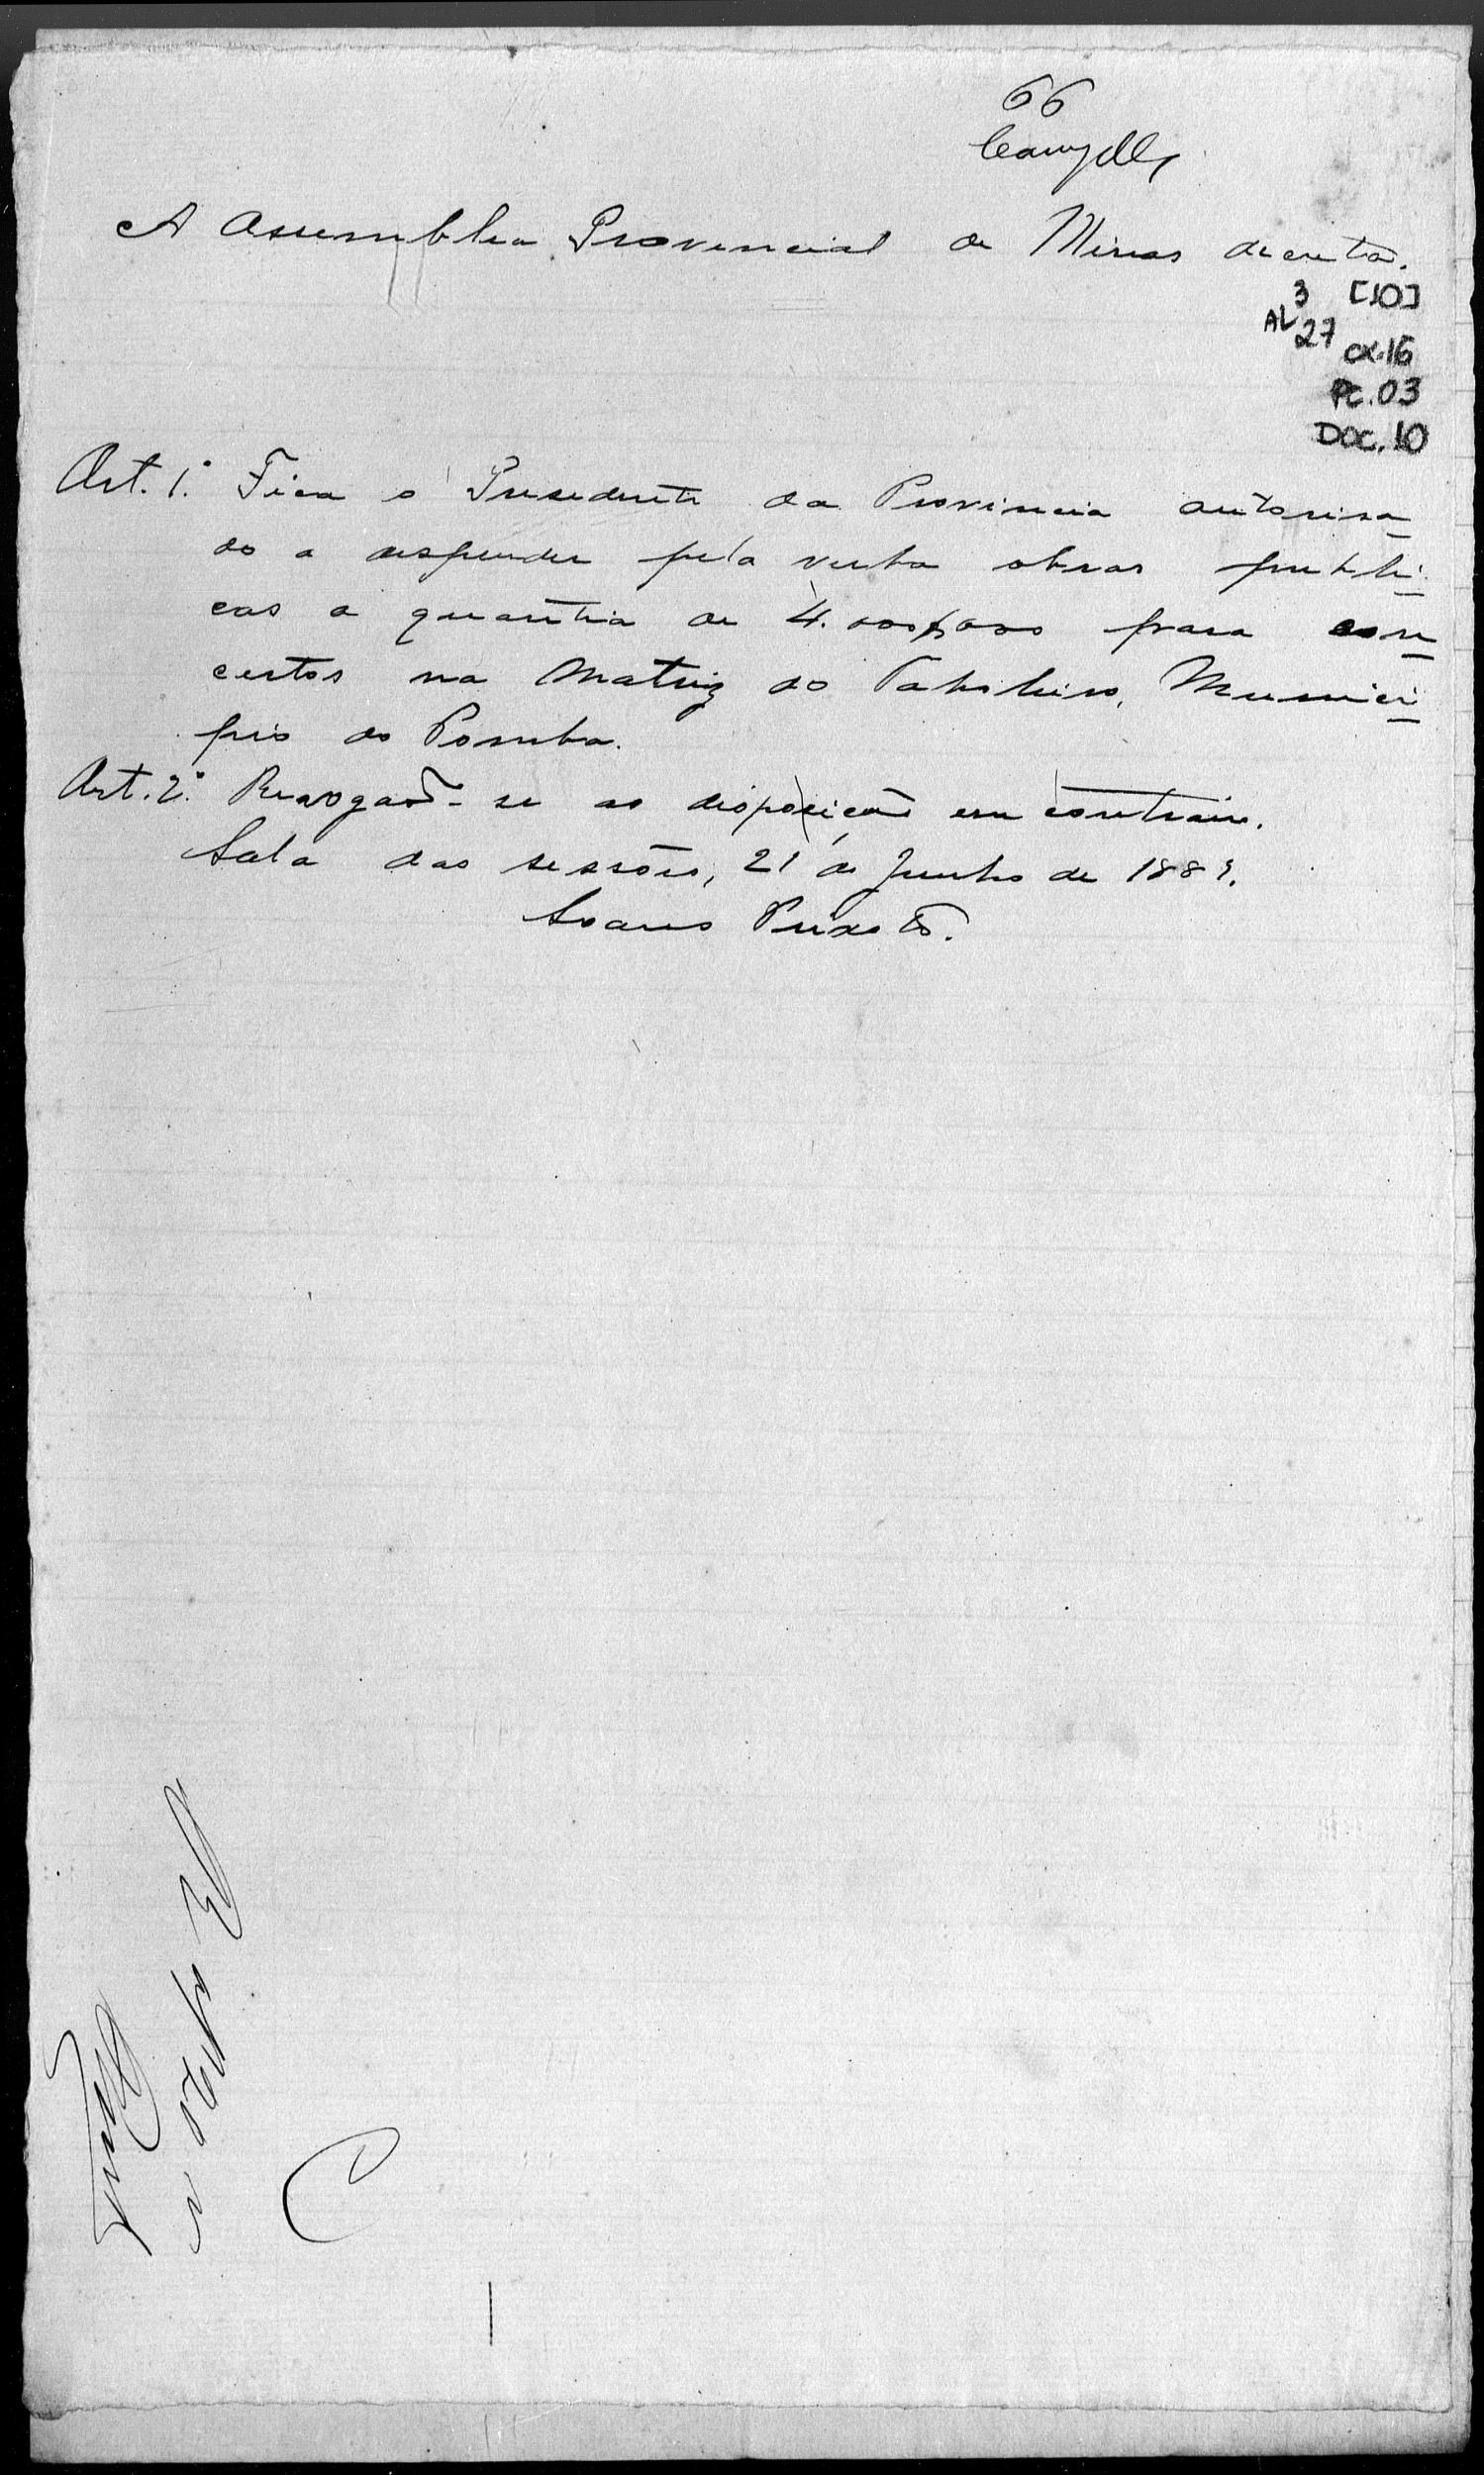 66
A Assemblea Provincial de Minas decreta.
3 [10]
AL 27 CX.16
PC.03
DOC.10
Art. 1.º Fica o Presidente da Provincia autorisa
do a despender pela verba obras publi
cas a quantia de 4.000$000 para con
certos na Matriz do Taboleiro, Munici
pio do Pomba.
Art. 2.º Revogaõ-se as disposições em contrario.
Sala das sessões, 21 de Junho de 188
Soares Peixoto.